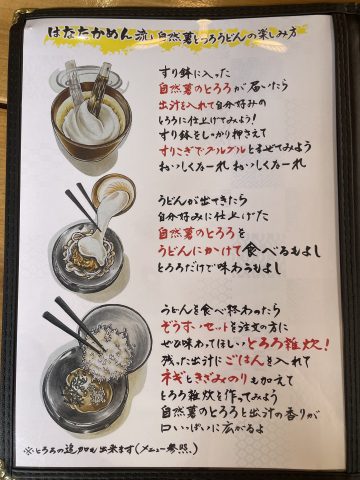 はなたかめん流、自然薯とろろうどんの楽しみ方
すり鉢に入った
自然薯のとろろが届いたら
出汁を入れて自分好みの
とろろに仕上げてみよう！
すり鉢をしっかり押さえて
すりこぎでグルグルとまぜてみよう
おいしくなーれ おいしくなーれ
うどんが出てきたら
自分好みに仕上げた
自然薯のとろろを
うどんにかけて食べるもよし
とろろだけで味わうもよし
うどんを食べ終わったら
ぞうすいセットを注文の方に
ぜひ味わってほしい、とろろ雑炊！
残った出汁にごはんを入れて
ネギときざみのりも加えて
とろろ雑炊を作ってみよう
自然薯のとろろと出汁の香りが
口いっぱいに広がるよ
※とろろの追加も出来ます（メニュー参照、）